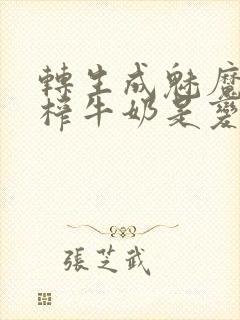 轉生成魅魔
榨牛奶是變
張芝武